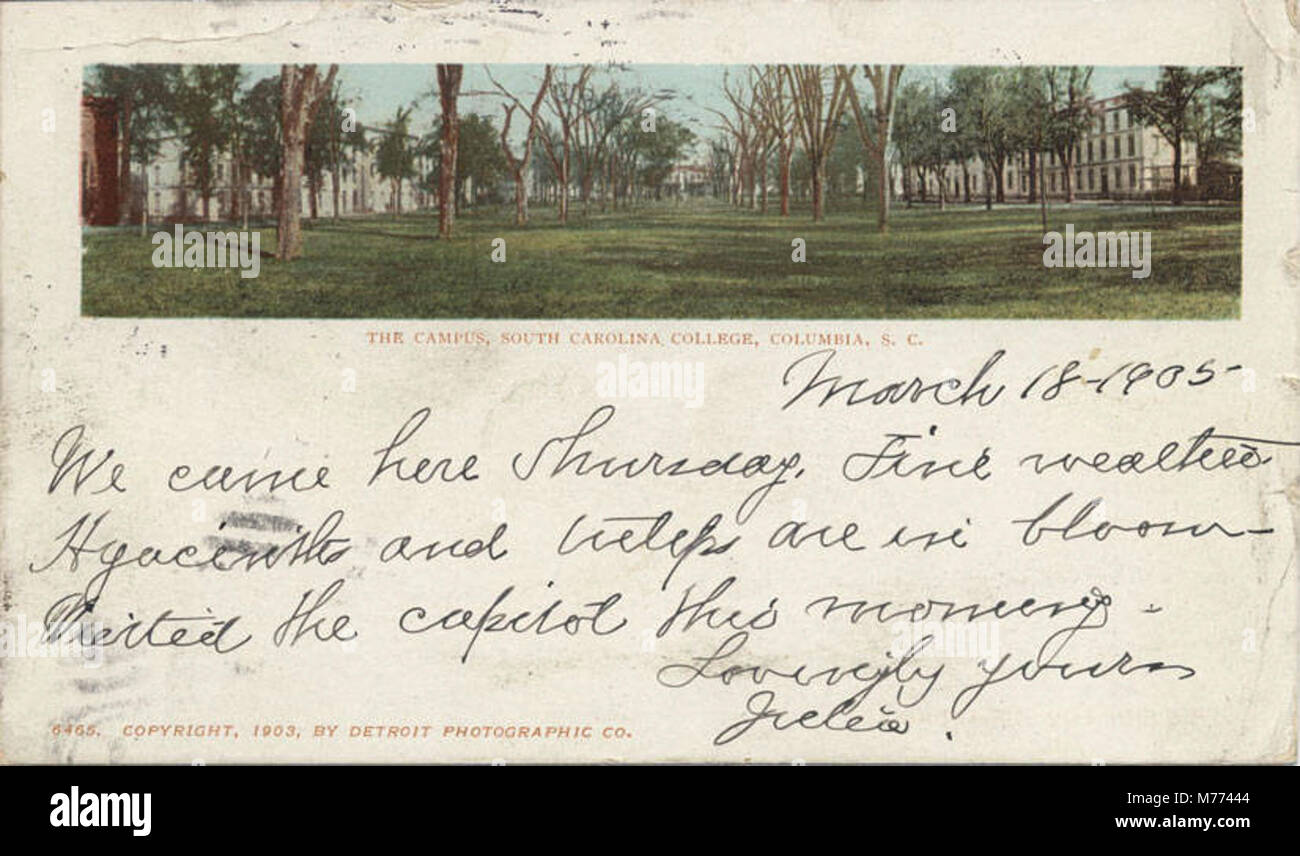 THE CAMPUS, SOUTH CAROLINA COLLEGE, COLUMBIA, S. C.
March 18-1905-
We came here Thursday. Fine weather
Hyacinths and tulips are in bloom-
Visited the capitol this morning.
Lovingly yours
6465. COPYRIGHT, 1903, BY DETROIT PHOTOGRAPHIC CO.
alamy
alamy
Image ID: M77444
www.alamy.com